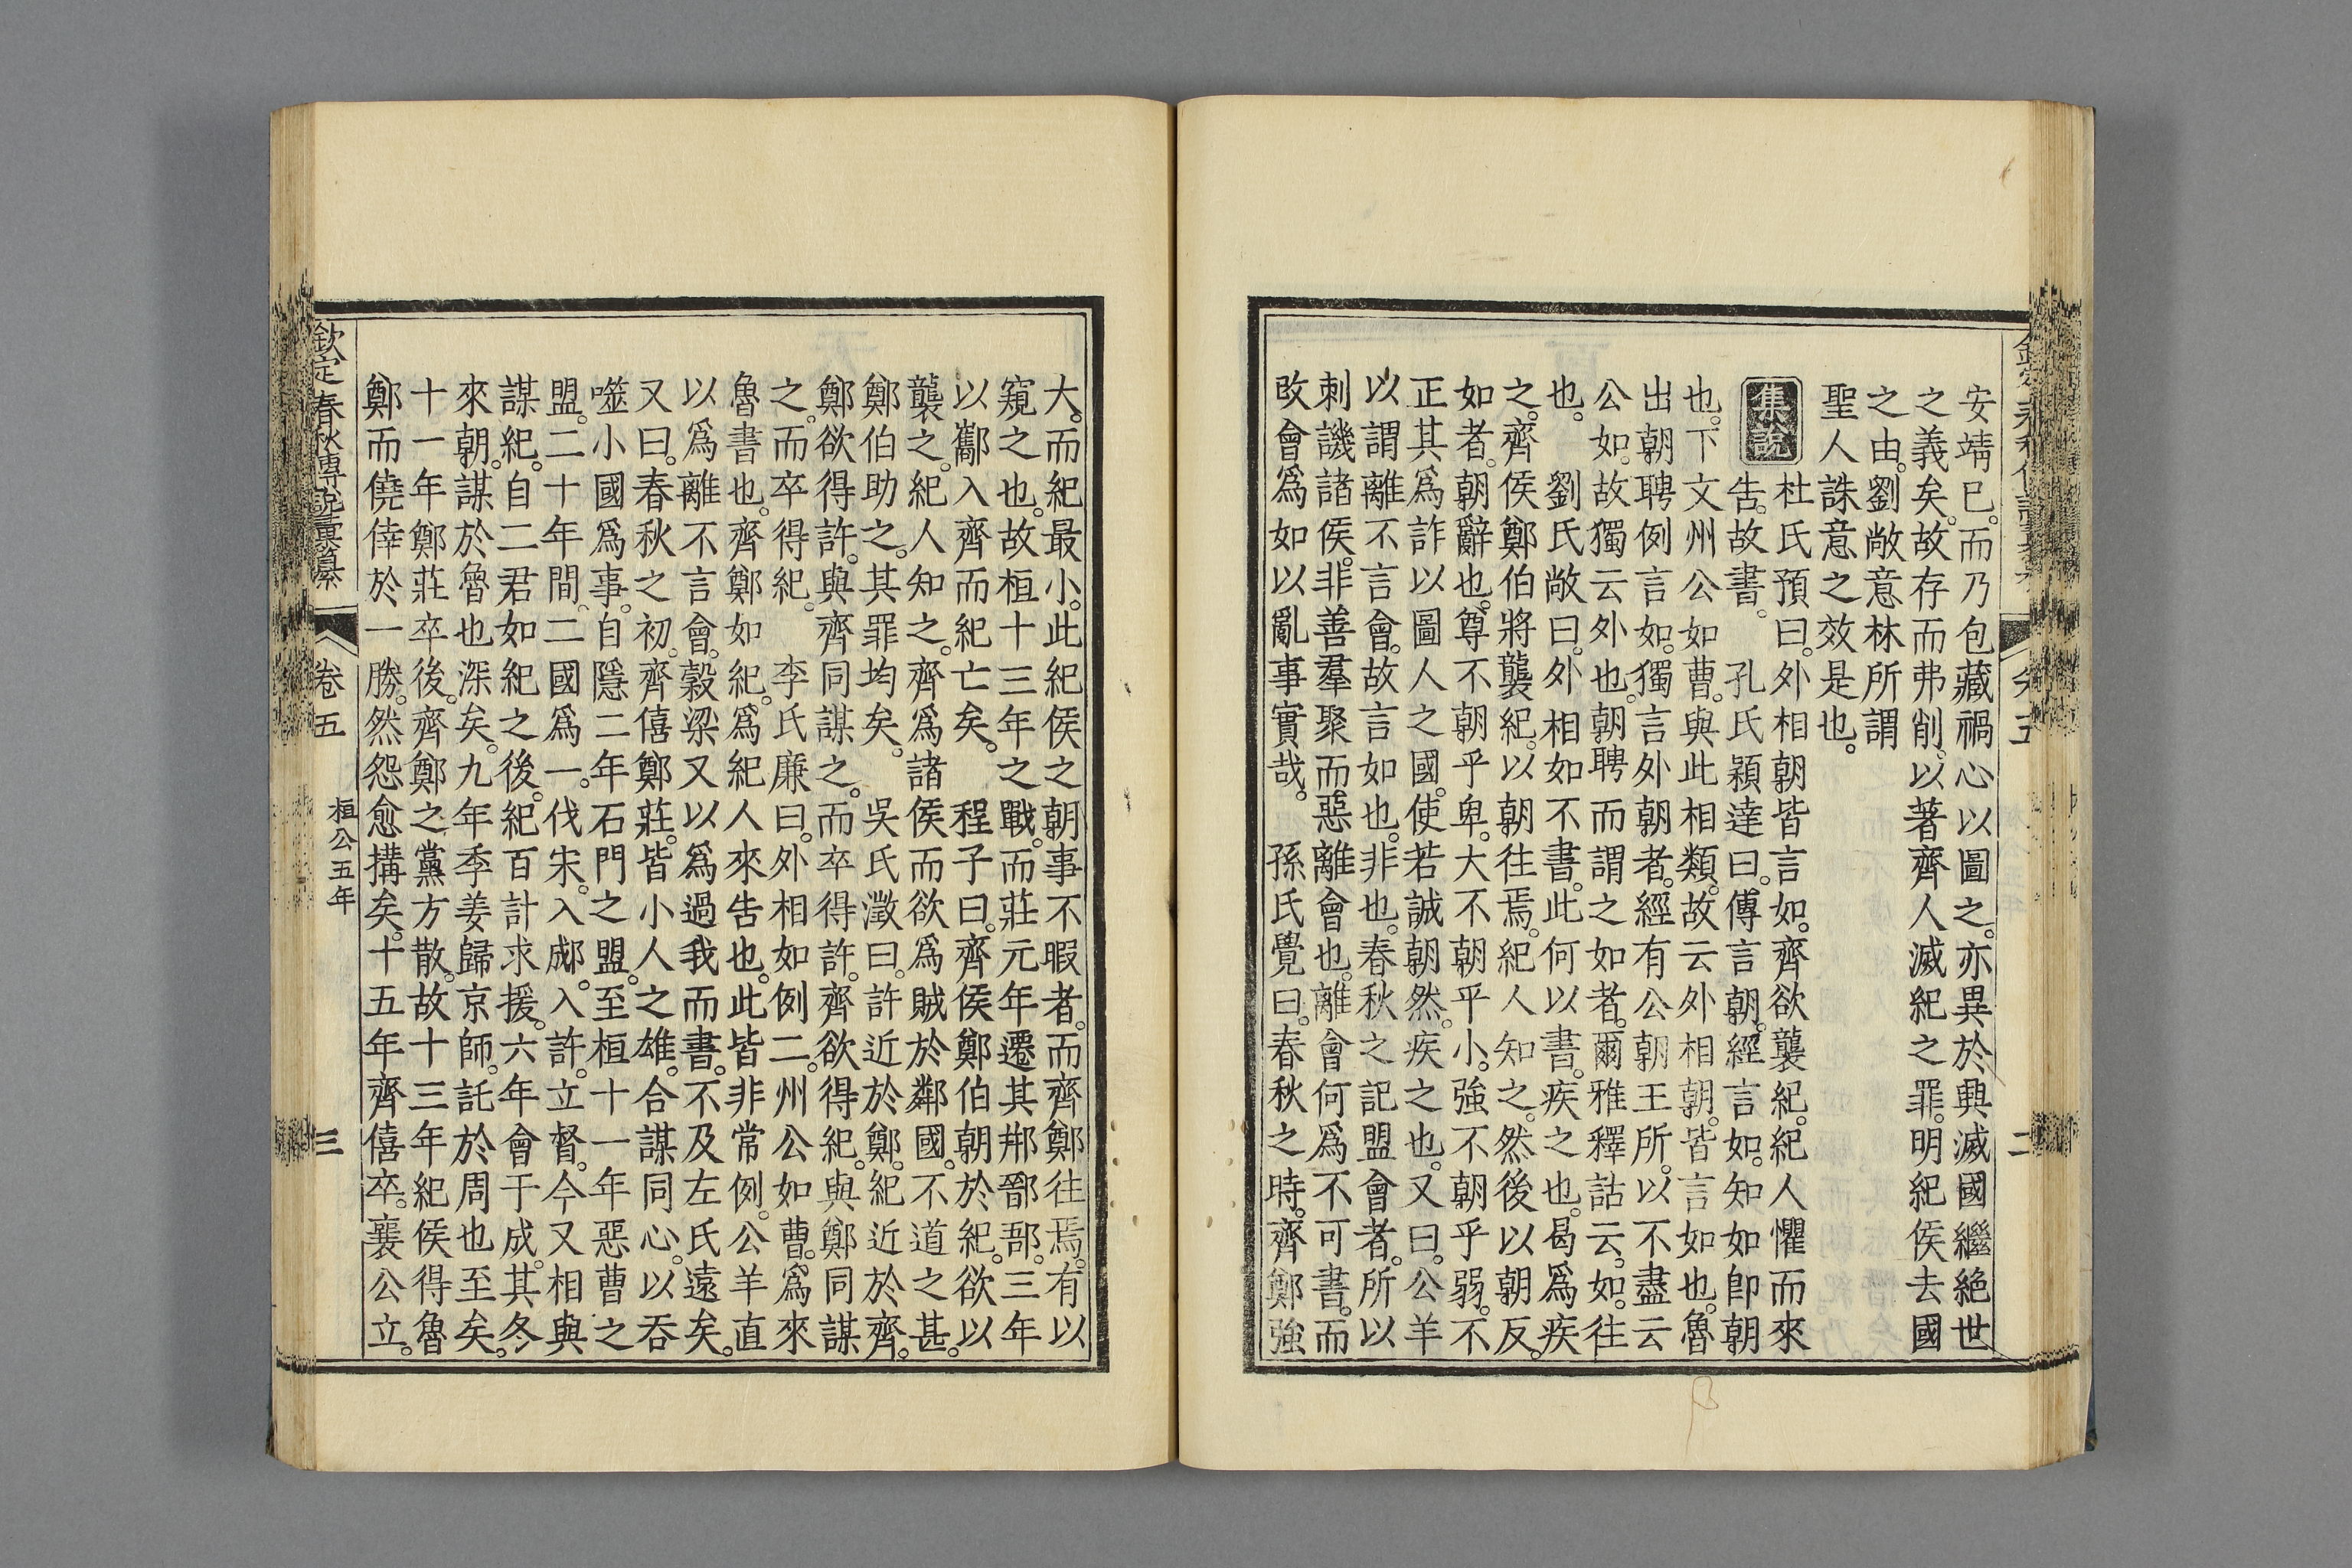 安靖已。而乃包藏禍心以圖之。亦異於興滅國繼絶世
之義矣。故存而弗削。以著齊人滅紀之罪。明紀侯去國
之由。劉敞意林所謂
聖人誅意之效是也。
集說
杜氏預曰。外相朝皆言如。齊欲襲紀。紀人懼而來
告。故書。　孔氏穎達曰。傳言朝。經言如。知如卽朝
也。下文州公如曹。與此相類。故云外相朝。皆言如也。魯
出朝聘例言如。獨言外朝者。經有公朝王所。以不盡云
公如。故獨云外也。朝聘而謂之如者。爾雅釋詁云。如。往
也。　劉氏敞曰。外相如不書。此何以書。疾之也。曷爲疾
之。齊侯鄭伯將襲紀。以朝往焉。紀人知之。然後以朝反。
如者。朝辭也。尊不朝乎卑。大不朝乎小。強不朝乎弱。不
正其爲詐以圖人之國。使若誠朝然。疾之也。又曰。公羊
以謂離不言會。故言如也。非也。春秋之記盟會者。所以
刺譏諸侯。非善羣聚而惡離會也。離會何爲不可書。而
改會爲如以亂事實哉。　孫氏覺曰。春秋之時。齊鄭強
大。而紀最小。此紀侯之朝事不暇者。而齊鄭往焉。有以
窺之也。故桓十三年之戰。而莊元年遷其郱鄑郚。三年
以酅入齊而紀亡矣。　程子曰。齊侯鄭伯朝於紀。欲以
襲之。紀人知之。齊爲諸侯而欲爲賊於鄰國。不道之甚。
鄭伯助之。其罪均矣。　吳氏澂曰。許近於鄭。紀近於齊。
鄭欲得許。與齊同謀之。而卒得許。齊欲得紀。與鄭同謀
之。而卒得紀。　李氏廉曰。外相如例二。州公如曹。爲來
魯書也。齊鄭如紀。爲紀人來告也。此皆非常例。公羊直
以爲離不言會。穀梁又以爲過我而書。不及左氏遠矣。
又曰。春秋之初。齊僖鄭莊。皆小人之雄。合謀同心。以吞
噬小國爲事。自隱二年石門之盟。至桓十一年惡曹之
盟。二十年間。二國爲一。伐宋。入郕。入許。立督。今又相與
謀紀。自二君如紀之後。紀百計求援。六年會于成。其冬
來朝。謀於魯也深矣。九年季姜歸京師。託於周也至矣。
十一年鄭莊卒後。齊鄭之黨方散。故十三年紀侯得魯
鄭而僥倖於一勝。然怨愈搆矣。十五年齊僖卒。襄公立。
欽定春秋傳說彙纂　卷五　桓公五年　三